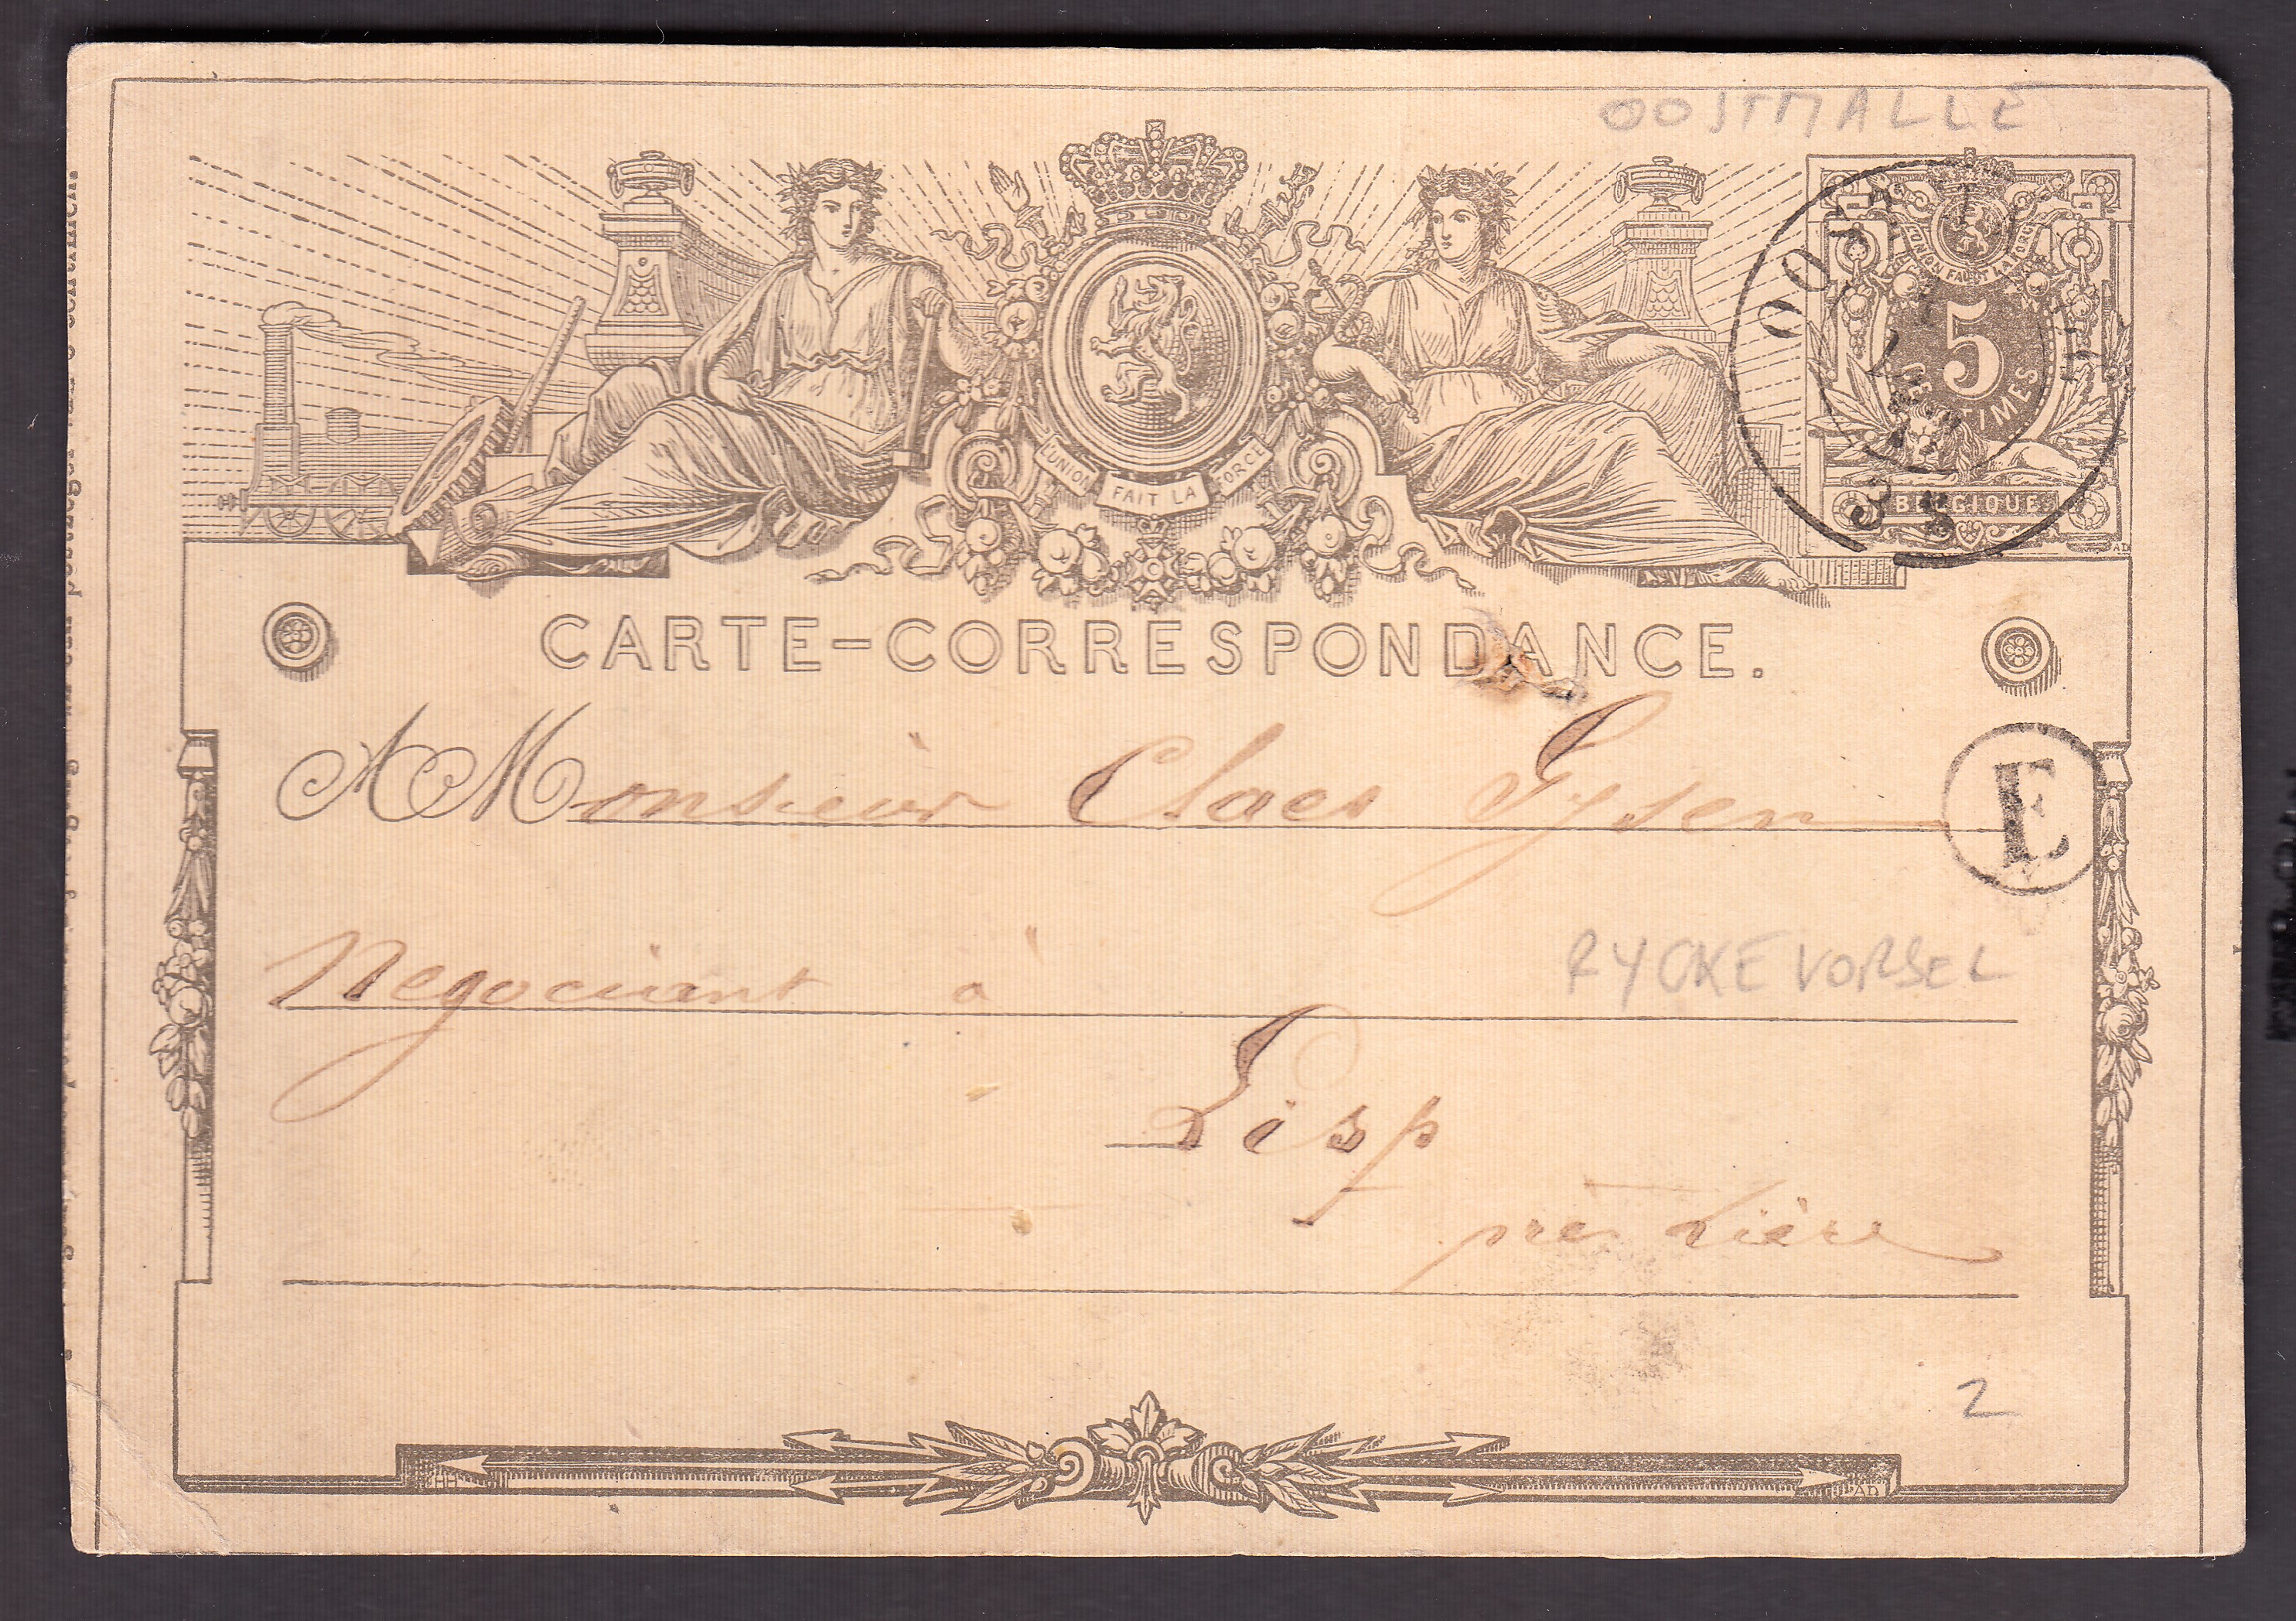 OOSTMALLE
L'UNION FAIT LA FORCE
L'UNION FAIT LA FORCE
5
CENTIMES
BELGIQUE
CARTE-CORRESPONDANCE.
A Monsieur Claes Gysen
E
Negociant à
RYCKEVORSEL
Lisp
près Lière
2
HH
AD